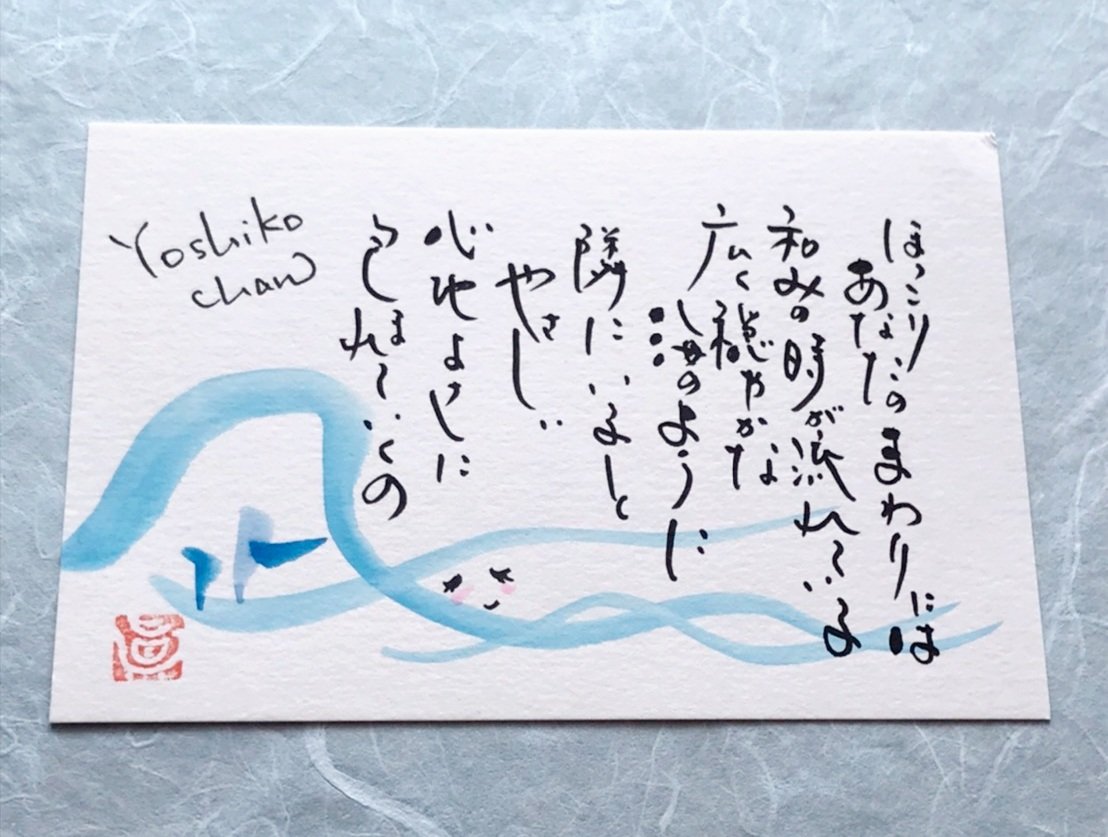 ほっこり
あなたのまわりには
和みの時が流れている
広く穏やかな
海のように
隣にいると
やさしい
心地よさに
つつまれていくの
Yoshiko
chan